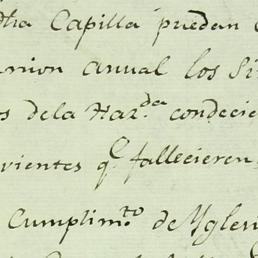 dha Capilla pueden
union anual los Si
os dela Haz.da condeci
vientes q.e fallecieren
Cumplim.to de Ygle